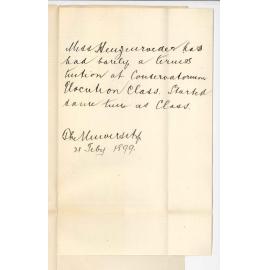 Miss Heuzenroeder has
had barely a term's
tuition at Conservatorium
Elocution Class. Started
same time as Class.
The University
28 Feby 1899.